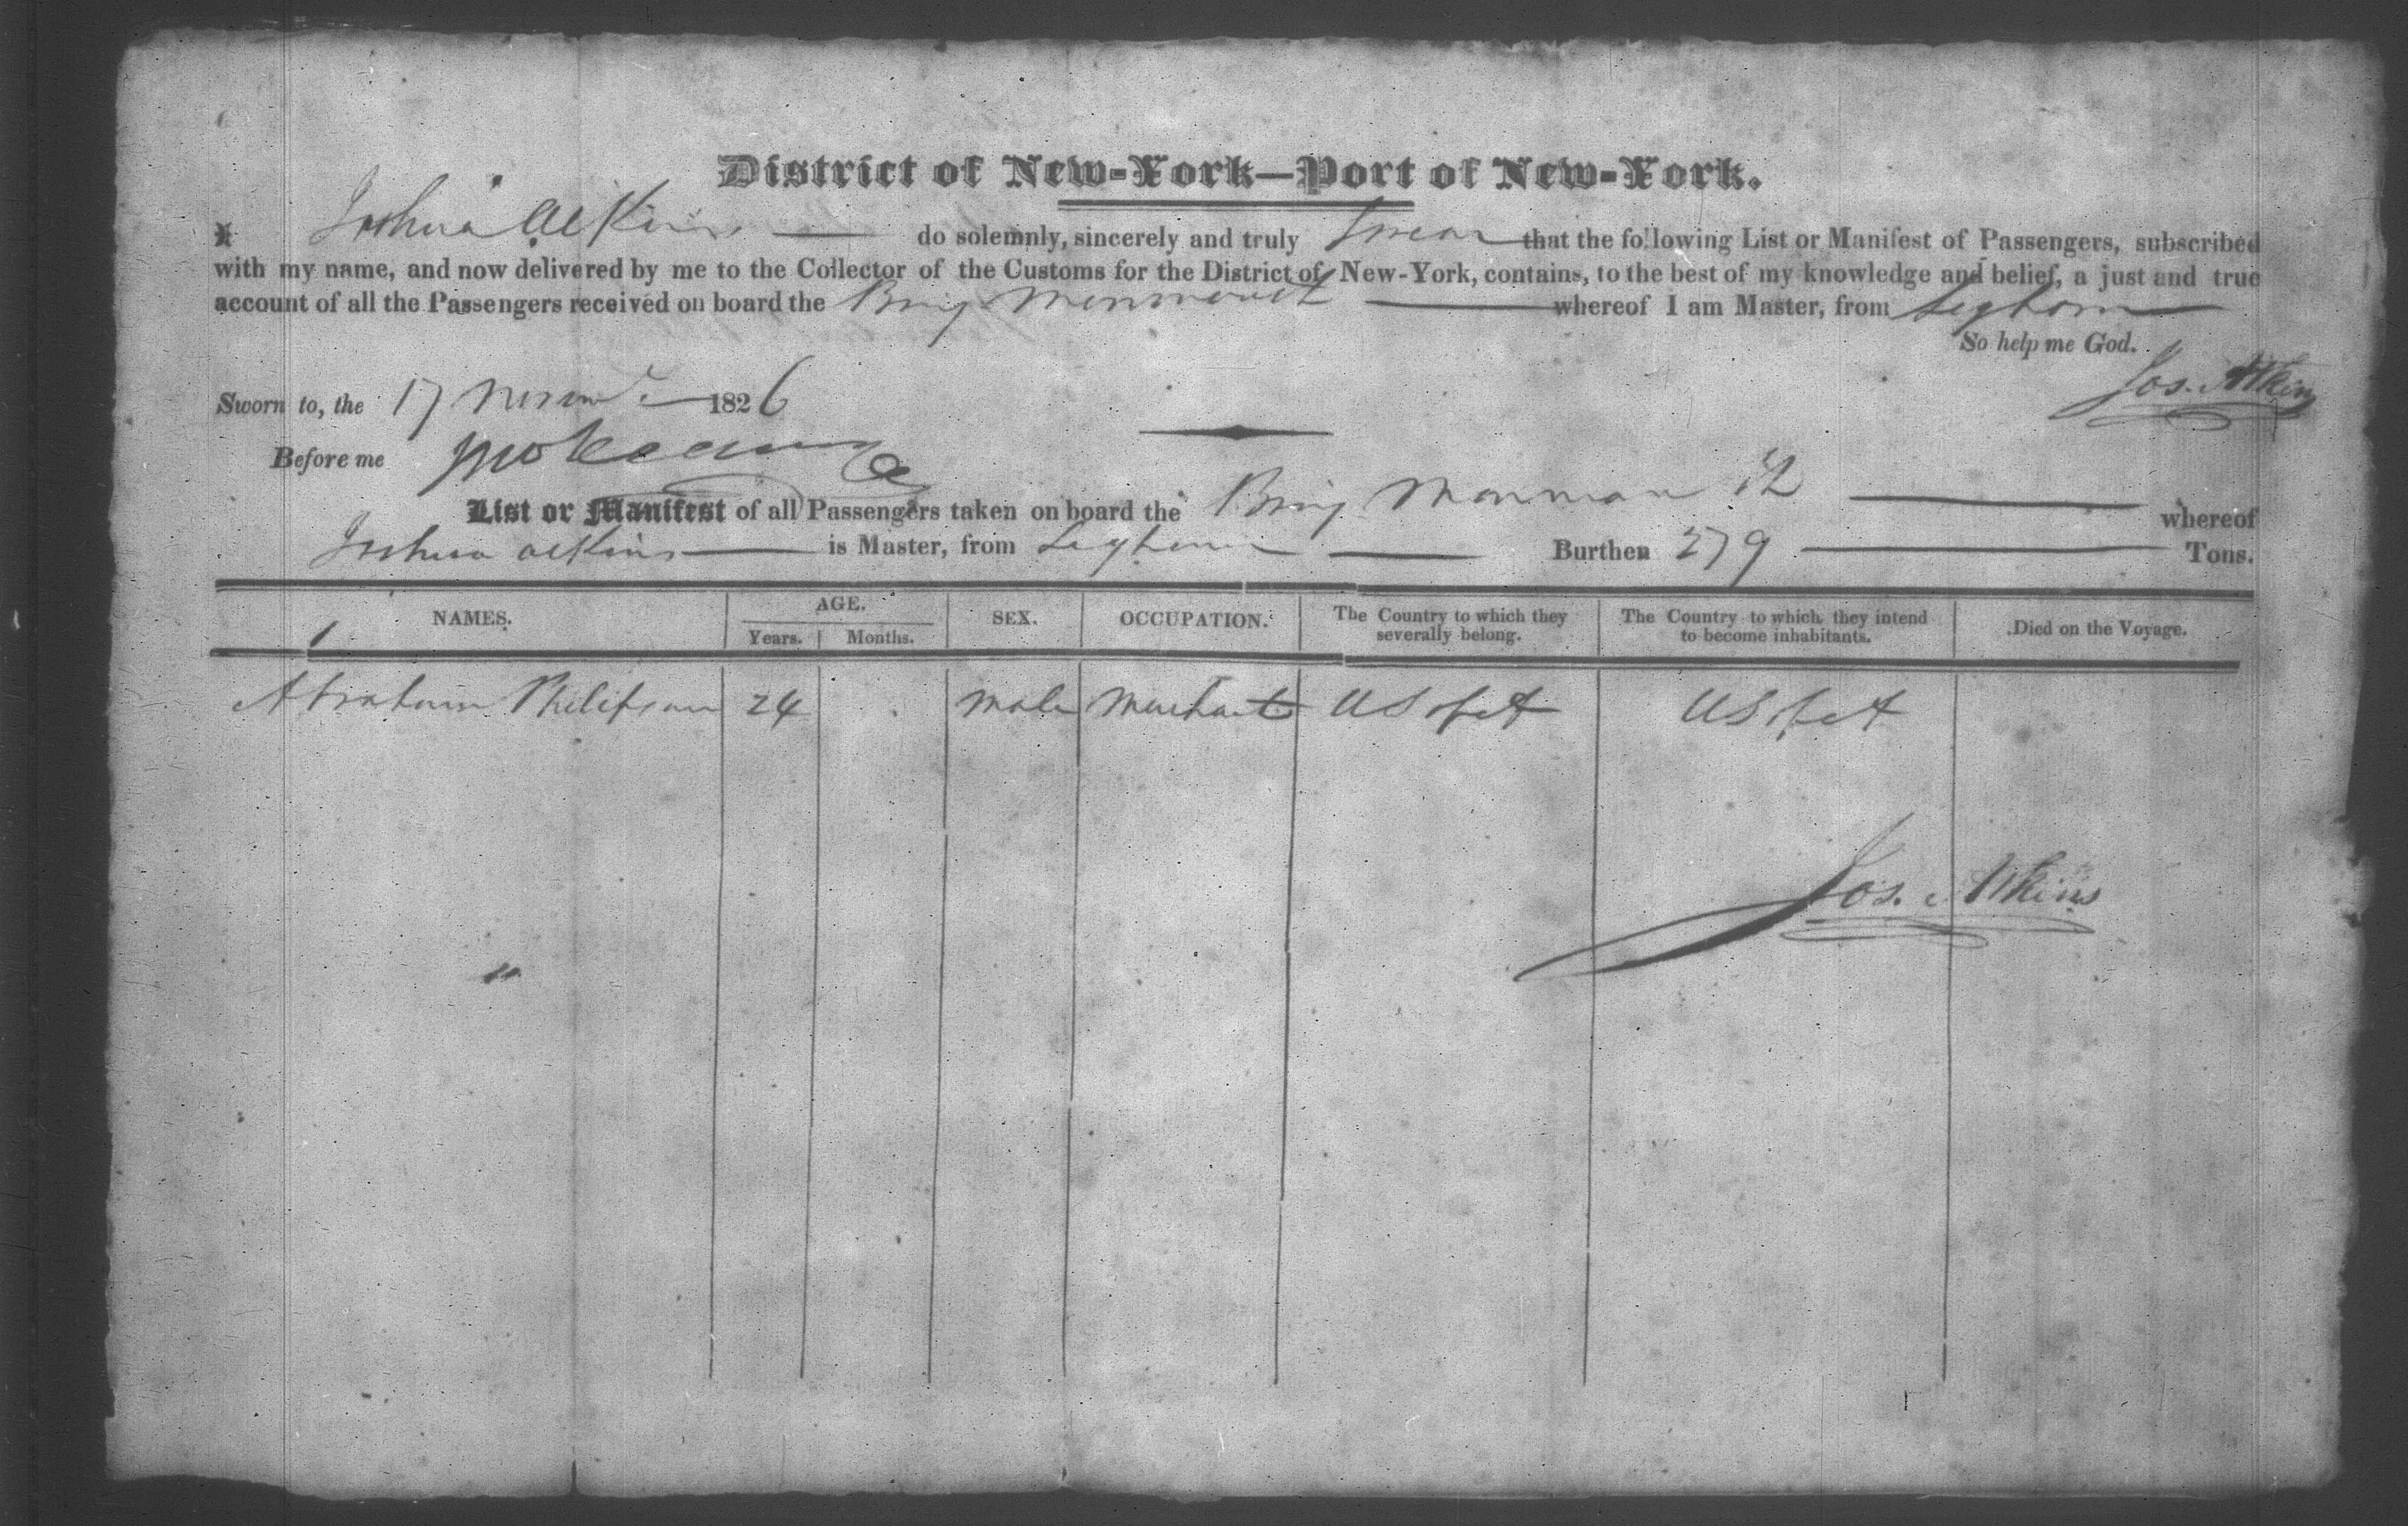 District of New-York—Port of New-York.
I Joshua Atkins — do solemnly, sincerely and truly Swear that the following List or Manifest of Passengers, subscribed
with my name, and now delivered by me to the Collector of the Customs for the District of New-York, contains, to the best of my knowledge and belief, a just and true
account of all the Passengers received on board the Brig Monmouth — whereof I am Master, from Leghorn —
So help me God.
Jos. Atkins
Sworn to, the 17 — 1826
Before me
List or Manifest of all Passengers taken on board the Brig — whereof
Joshua Atkins — is Master, from Leghorn — Burthen 279 — Tons.
NAMES. AGE. SEX. OCCUPATION. The Country to which they severally belong. The Country to which they intend to become inhabitants. Died on the Voyage.
Years. Months.
1
Abraham Philipson 24 male Merchant US of A US of A
Jos. Atkins